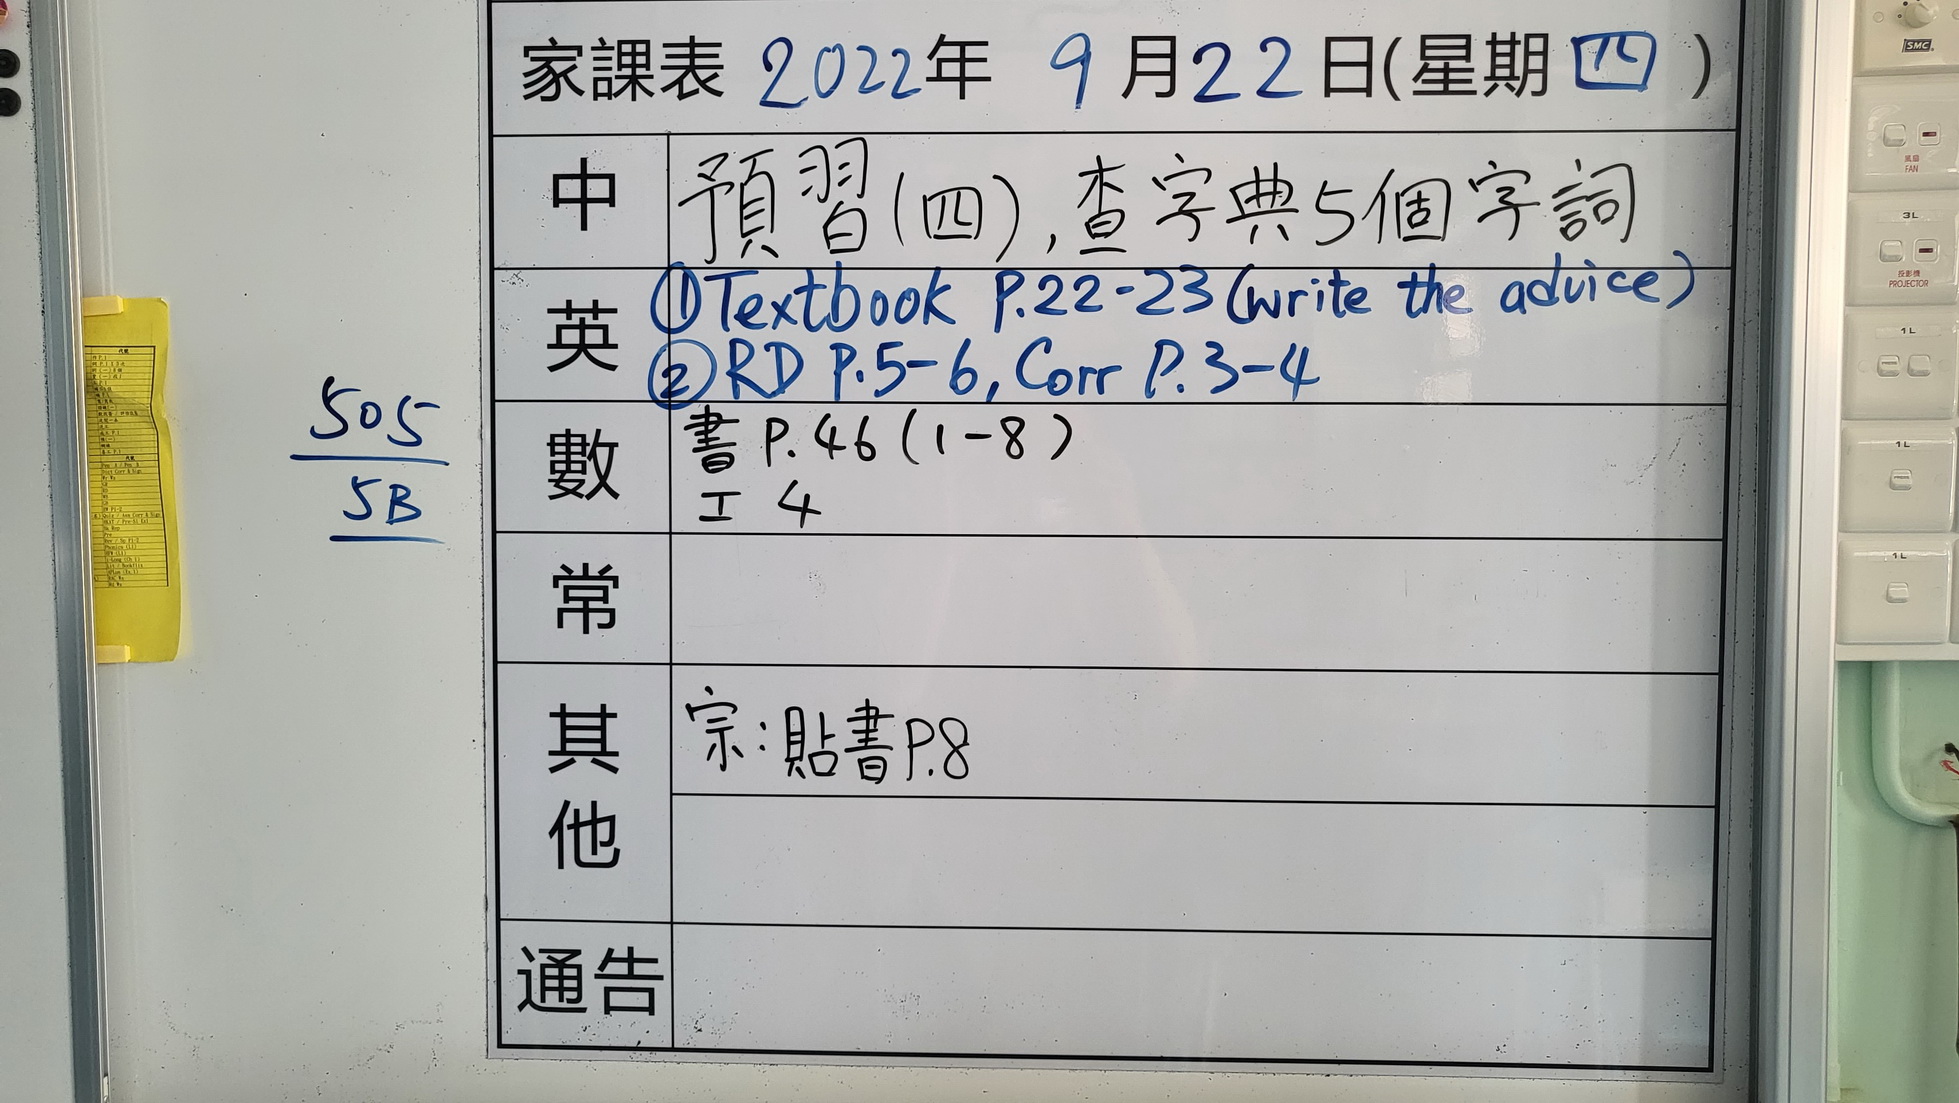 家課表 2022年 9月22日(星期四)
中 預習(四), 查字典5個字詞
英 ①Textbook P.22-23 (write the advice)
②RD P.5-6, Corr P.3-4
數 書 P.46 (1-8)
工 4
常
其他 宗:貼書P.8
通告
505
5B
代號
代號
SMC
風扇
FAN
3L
投影機
PROJECTOR
1L
1L
1L